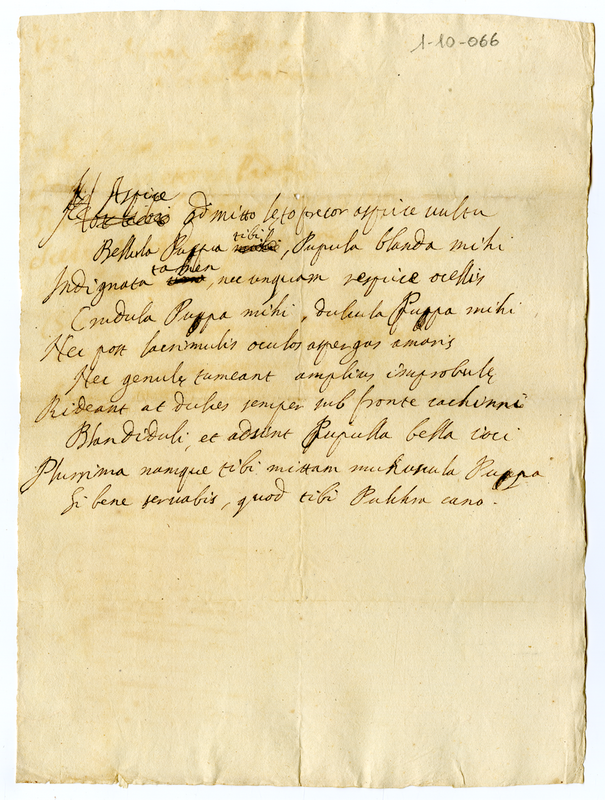 1-10-066
Aspice
admitto leto precor aspice uultu
tibi
Bellula Puppa, Pupula blanda mihi
tamen
Indignata, nec unquam respice ocellis
Crudula Puppa mihi, dulcula Puppa mihi
Nec post lacrimulis oculos aspergas amaris
Nec genulę tumeant amplius improbulę
Rideant at dulces semper sub fronte cachinni
Blandiduli, et adsint Pupulla bella ioci
Plurima namque tibi mittam munuscula Puppa
Si bene seruabis, quod tibi Pulchra cano.